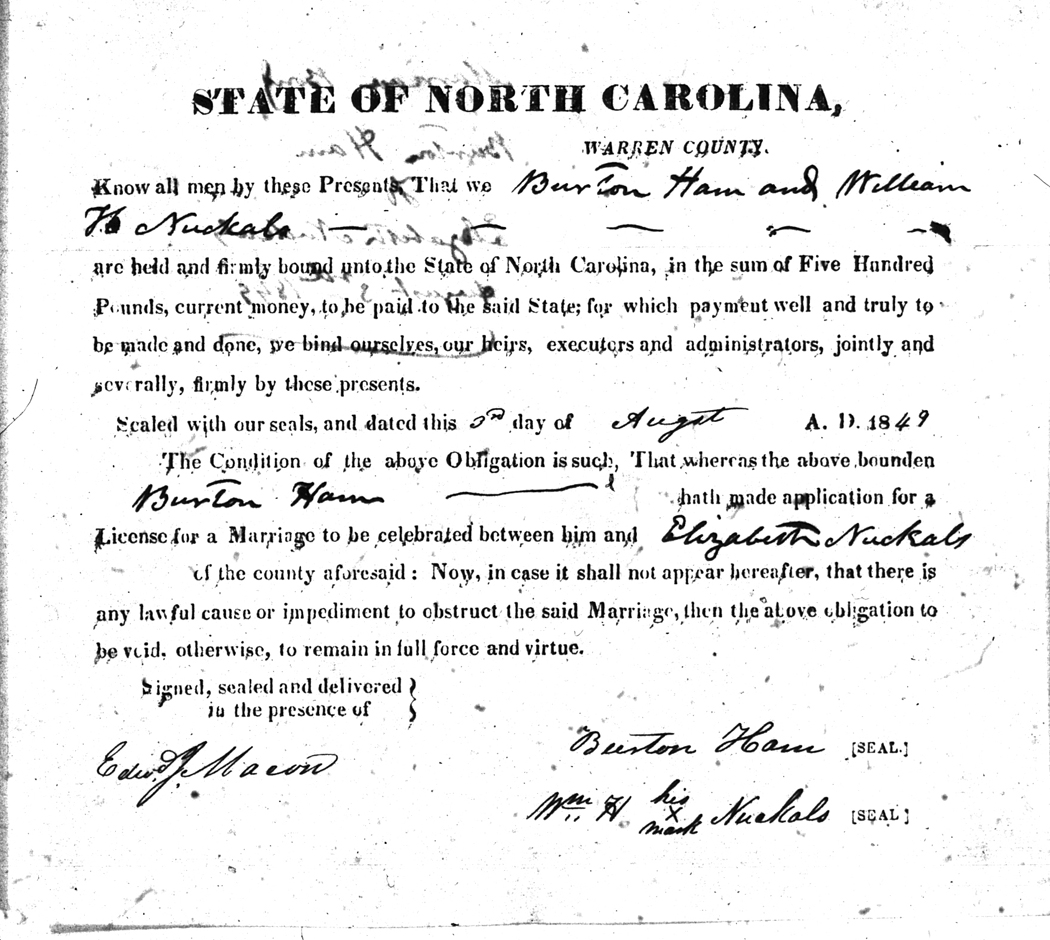 STATE OF NORTH CAROLINA,
WARREN COUNTY.
Know all men by these Presents, That we Burton Ham and William
H Nuckals
are held and firmly bound unto the State of North Carolina, in the sum of Five Hundred
Pounds, current money, to be paid to the said State; for which payment well and truly to
be made and done, we bind ourselves, our heirs, executors and administrators, jointly and
severally, firmly by these presents.
Sealed with our seals, and dated this 3rd day of Augst A. D. 1849
The Condition of the above Obligation is such, That whereas the above bounden
Burton Ham hath made application for a
License for a Marriage to be celebrated between him and Elizabeth Nuckals
of the county aforesaid: Now, in case it shall not appear hereafter, that there is
any lawful cause or impediment to obstruct the said Marriage, then the above obligation to
be void, otherwise, to remain in full force and virtue.
Signed, sealed and delivered
in the presence of
Burton Ham [SEAL.]
Edwd. J. Macon
Wm H his x mark Nuckals [SEAL]